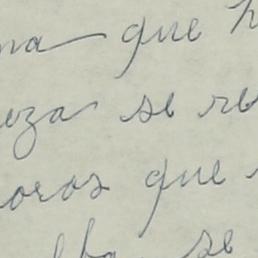 na que
eza se re
oros que
lba se